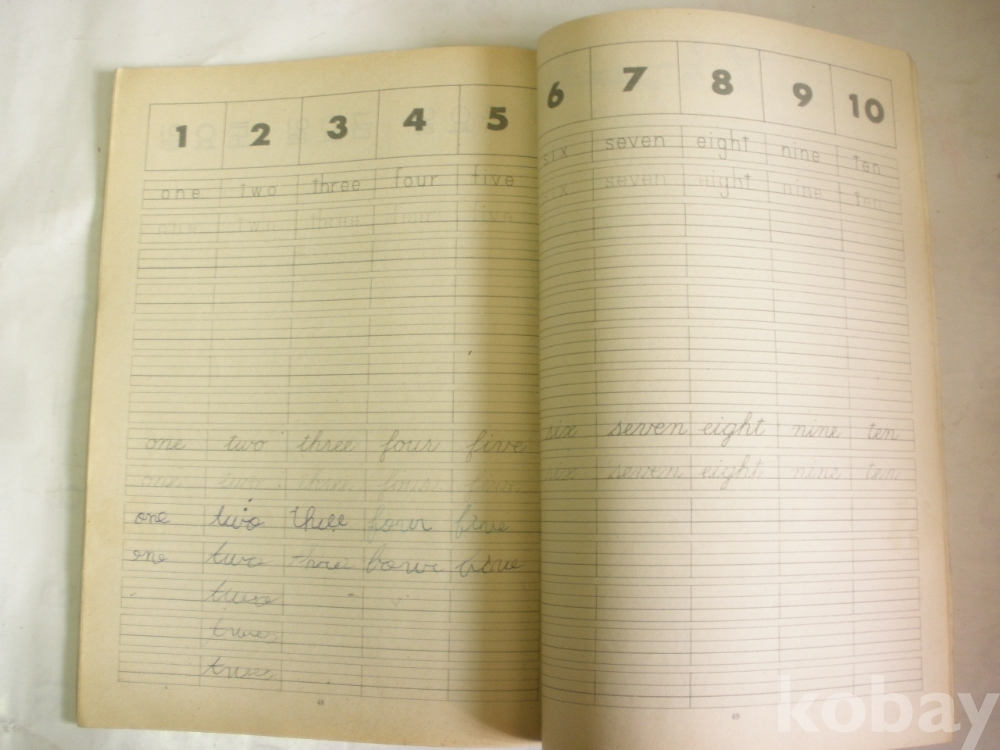 1 2 3 4 5 6 7 8 9 10
one two three four five six seven eight nine ten
one two three four five six seven eight nine ten
one two three four five six seven eight nine ten
one two three four five six seven eight nine ten
one two three four five
one two three four five
two
two
two
48 49
kobay